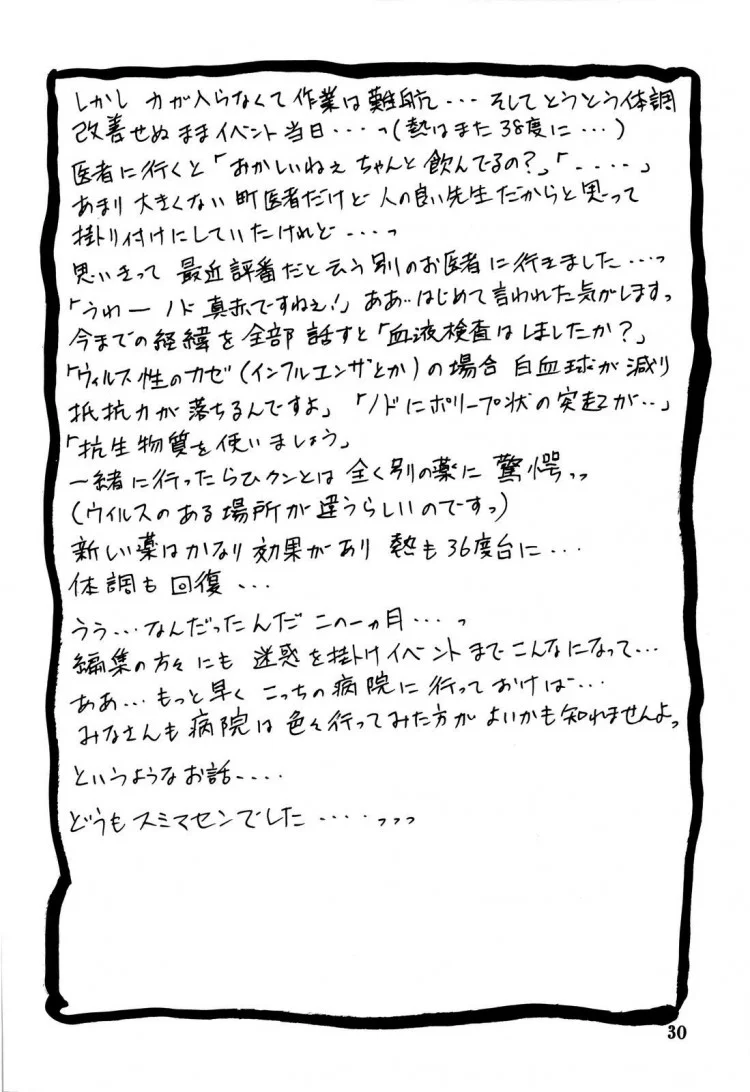 しかし 力が入らなくて作業は難航・・・そしてとうとう体調
改善せぬままイベント当日・・・っ(熱はまた38度に・・・)
医者に行くと「おかしいねぇ ちゃんと飲んでるの?」「・・・・」
あまり大きくない町医者だけど 人の良い先生だからと思って
掛り付けにしていたけれど・・・っ
思いきって 最近評番だと云う別のお医者に行きました・・・っ
「うわー ノド真赤ですねぇ!」ああ‥はじめて言われた気がしますっ
今までの経緯を全部話すと「血液検査はしましたか?」
「ウィルス性のカゼ(インフルエンザとか)の場合 白血球が減り
抵抗力が落ちるんですよ」「ノドにポリープ状の突起が‥」
「抗生物質を使いましょう」
一緒に行ったらひクンとは 全く別の薬に 驚愕っっ
(ウィルスのある場所が違うらしいのですっ)
新しい薬はかなり効果があり 熱も36度台に・・・
体調も回復・・・
うぅ・・・なんだったんだ この一ヵ月・・・っ
編集の方々にも 迷惑を掛けイベントまでこんなになって・・・
ああ・・・もっと早く こっちの病院に行っておけば・・・
みなさんも病院は色々行ってみた方がよいかも知れませんよっ
というようなお話・・・・
どうもスミマセンでした・・・・っっっ
30